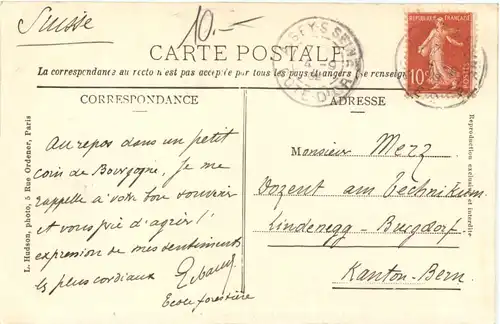 Suisse
10.-
CARTE POSTALE
La correspondance au recto n'est pas acceptée par tous les pays étrangers (Se renseigner
CORRESPONDANCE
ADRESSE
Au repos dans un petit
coin de Bourgogne, je me
rappelle à votre bon souvenir
et vous prie d'agréer l'
expression de mes sentiments
les plus cordiaux
Ecole forestière
Monsieur Merz
Dozent am Technikum
Lindenegg - Burgdorf
Kanton-Bern
L. Hudson, photo, 5 Rue Ordener, Paris
Reproduction exclusive et interdite
REPUBLIQUE FRANÇAISE
10c
CÔTE D'OR